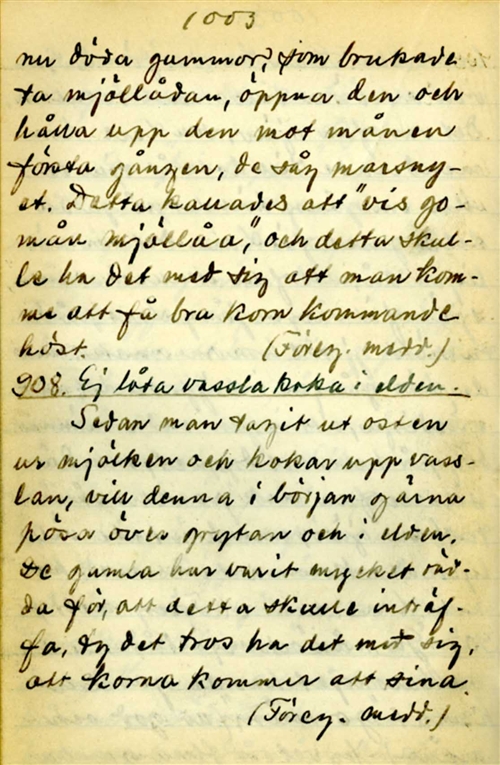 1003
nu döda gummor, som brukade
ta mjöllådan, öppna den och
hålla upp den mot månen
första gången, de såg marsny-
et. Detta kallades att "vis go-
mån mjöllåa", och detta skul-
le ha det med sig att man kom-
me att få bra korn kommande
höst. (Föreg. medd.)
908. Ej låta vassla koka i elden.
Sedan man tagit ut osten
ur mjölken och kokar upp vass-
lan, vill denna i början gärna
pösa över grytan och i elden.
De gamla har varit mycket räd-
da för, att detta skulle inträf-
fa, ty det tros ha det med sig,
att korna kommer att sina.
(Föreg. medd.)